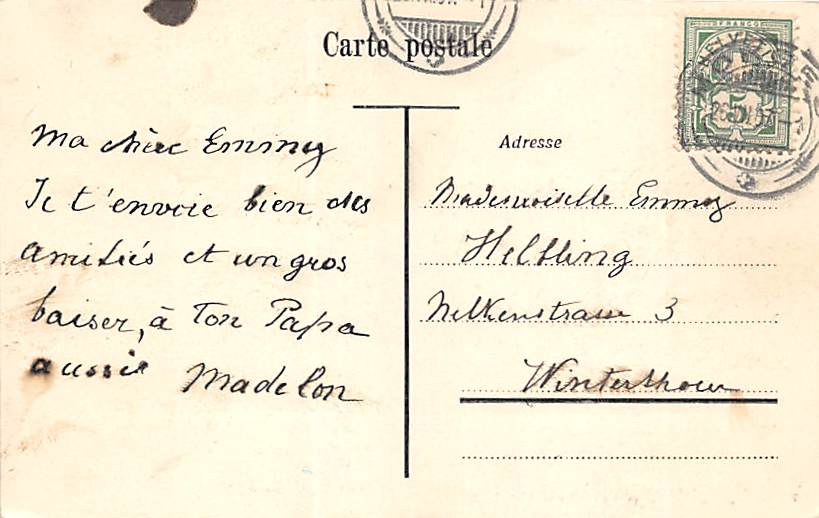 Carte postale
FRANCO
HELVETIA
5
Ma chère Emmy
Je t'envoie bien des
amitiés et un gros
baiser, à Ton Papa
aussi Madelon
Adresse
Mademoiselle Emmy
Helbling
Nelkenstrasse 3
Winterthour